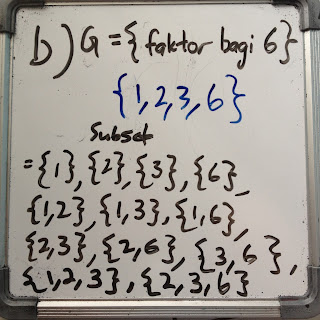 b) G = {faktor bagi 6}
{1,2,3,6}
Subset
= {1}, {2}, {3}, {6},
{1,2}, {1,3}, {1,6},
{2,3}, {2,6}, {3,6},
{1,2,3}, {2,3,6}